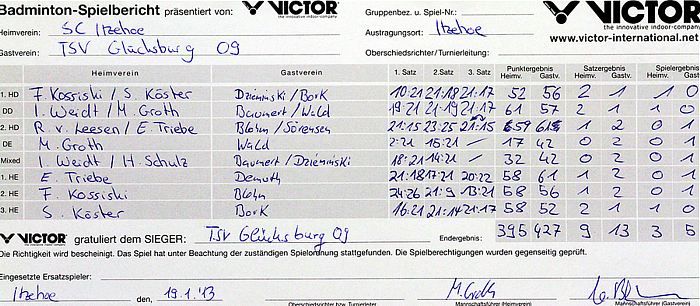 Badminton-Spielbericht präsentiert von: VICTOR the innovative indoor-company Gruppenbez. u. Spiel-Nr.:
Heimverein: SC Itzehoe Austragungsort: Itzehoe www.victor-international.net
Gastverein: TSV Glücksburg 09 Oberschiedsrichter/Turnierleitung:
Heimverein Gastverein 1. Satz 2. Satz 3. Satz Punktergebnis Heimv. Gastv. Satzergebnis Heimv. Gastv. Spielergebnis Heimv. Gastv.
1. HD F. Kossiski / S. Köster Dzieminski / Bork 10:21 21:18 21:17 52 56 2 1 1 0
DD I. Weidt / M. Groth Baumert / Wald 19:21 21:19 21:17 61 57 2 1 1 0
2. HD R. v. Leesen / E. Triebe Blohm / Sörensen 21:15 23:25 21:15 1 2 0 1
DE M. Groth Wald 2:21 15:21 17 42 0 2 0 1
Mixed I. Weidt / H. Schulz Baumert / Dzieminski 18:21 14:21 32 42 0 2 0 1
1. HE E. Triebe Demuth 21:18 17:21 20:22 58 61 1 2 0 1
2. HE F. Kossiski Blohm 24:26 21:9 13:21 58 56 1 2 0 1
3. HE S. Köster Bork 16:21 21:14 21:17 58 52 2 1 1 0
VICTOR gratuliert dem SIEGER: TSV Glücksburg 09 Endergebnis: 395 427 9 13 3 5
Die Richtigkeit wird bescheinigt. Das Spiel hat unter Beachtung der zuständigen Spielordnung stattgefunden. Die Spielberechtigungen wurden gegenseitig geprüft.
Eingesetzte Ersatzspieler:
Itzehoe den, 19.1.'13 M. Groth
Oberschiedsrichter bzw. Turnierleiter Mannschaftsführer (Heimverein) Mannschaftsführer (Gastverein)